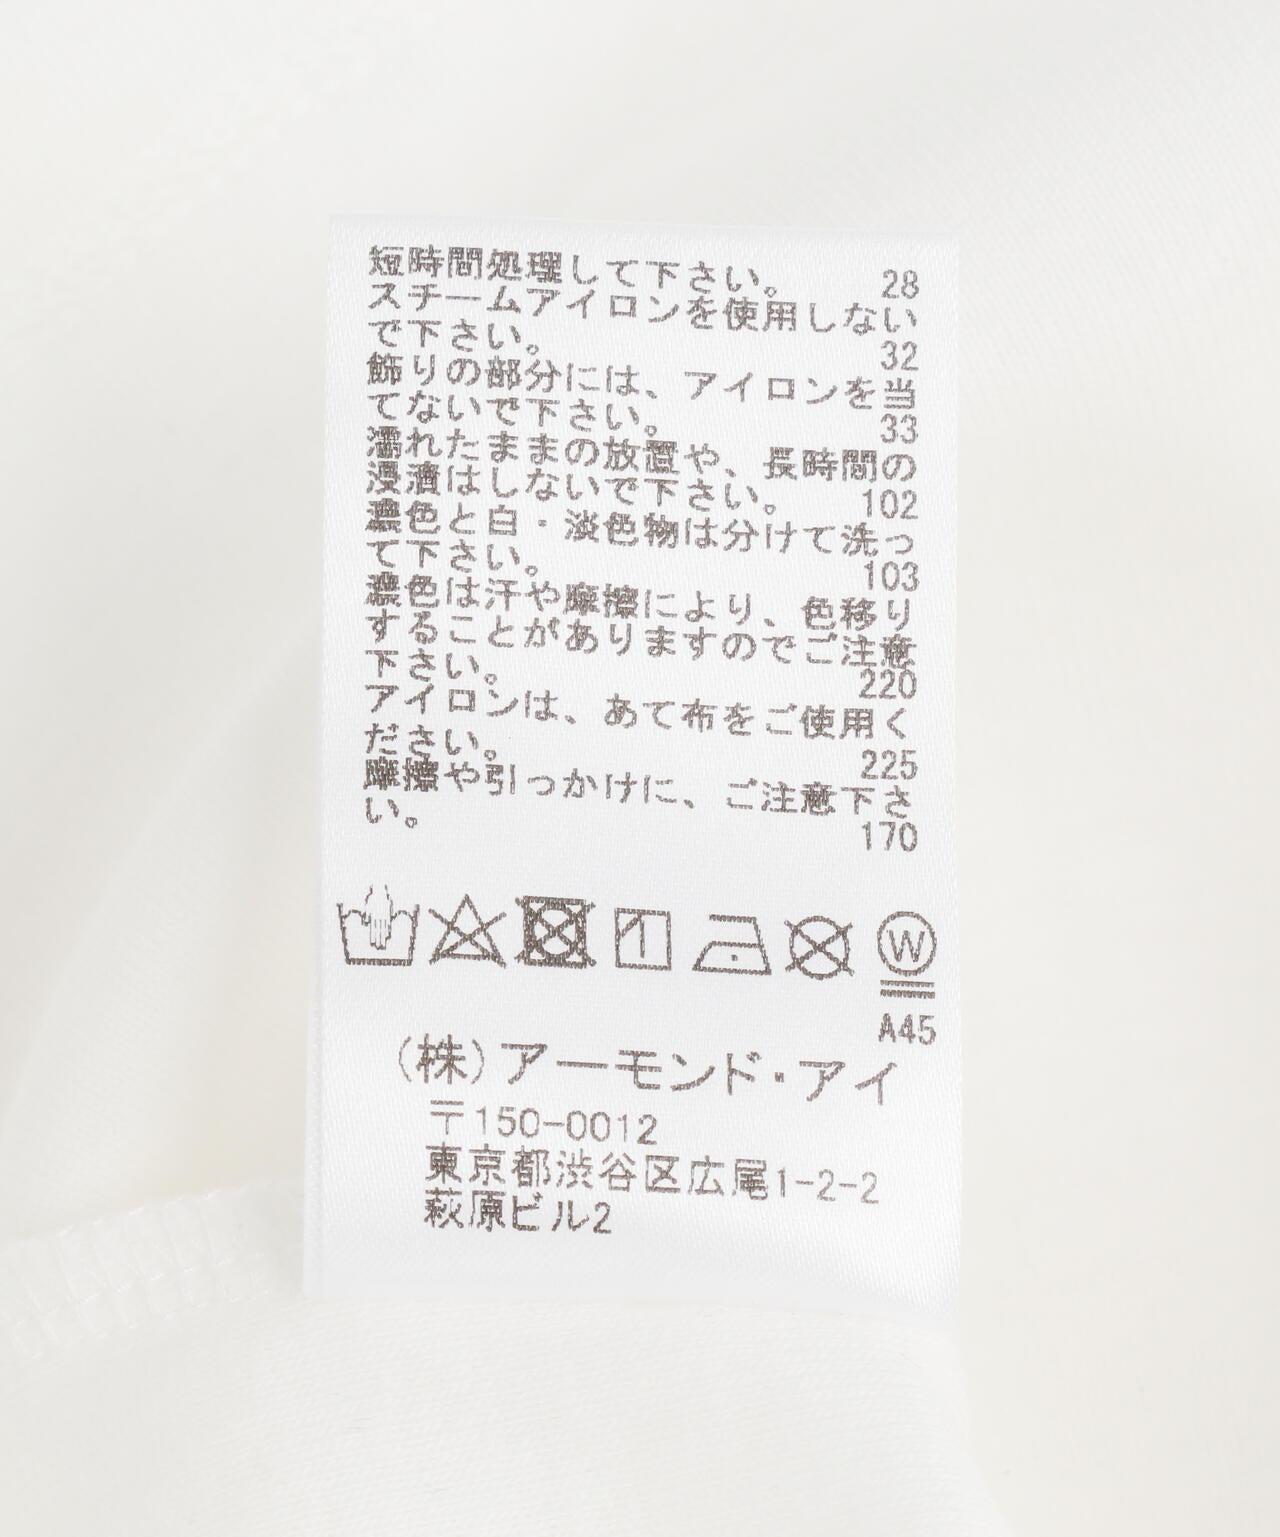 短時間処理して下さい。 28
スチームアイロンを使用しない
で下さい。 32
飾りの部分には、アイロンを当
てないで下さい。 33
濡れたままの放置や、長時間の
浸漬はしないで下さい。 102
濃色と白・淡色物は分けて洗っ
て下さい。 103
濃色は汗や摩擦により、色移り
することがありますのでご注意
下さい。 220
アイロンは、あて布をご使用く
ださい。 225
摩擦や引っかけに、ご注意下さ
い。 170
W
A45
(株)アーモンド・アイ
〒150-0012
東京都渋谷区広尾1-2-2
萩原ビル2